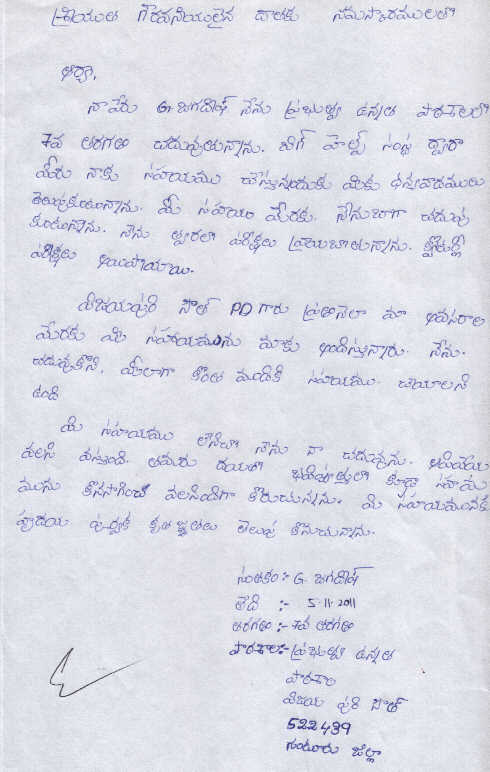 శ్రీయుత గౌరవనీయులైన దాతకు నమస్కారములతో
ఆర్యా,
నా పేరు G. జగదీష్ నేను ప్రభుత్వ ఉన్నత పాఠశాలలో
7వ తరగతి చదువుతున్నాను. బిగ్ హెల్ప్ సంస్థ ద్వారా
మీరు నాకు సహాయము చేస్తునందుకు మీకు ధన్యవాదములు
తెలుపుకుంటునాను. మీ సహాయం మేరకు. నేను బాగా చదువు
కుంటున్నాను. నేను త్వరలో పరీక్షలు వ్రాయబోతున్నాను. క్వార్టర్లీ
పరీక్షలు అయిపోయాయి.
విజయపురి సౌత్ PD గారు ప్రతినెలా మా అవసరాల
మేరకు మీ సహాయమును మాకు అందిస్తున్నారు. నేను.
చదువుకొని, మీలాగా కొంత మందికి సహాయము. చేయాలని
ఉంది
మీ సహాయము లేనిచో నేను నా చదువును. ఆపివేయ
వలసి వస్తుంది. తమరు దయతో భవిష్యత్తులో కూడా సహాయ
మును కొనసాగించ వలసిందిగా కోరుచున్నాను. మీ సహాయమునకు
హృదయ పూర్వక కృతజ్ఞతలు తెలుపు కొనుచునాను.
సంతకం:- G. జగదీష్
తేది :- 5-11-2011
తరగతి :- 7వ తరగతి
పాఠశాల:- ప్రభుత్వ ఉన్నత
పాఠశాల
విజయ పురి సౌత్
522439
గుంటూరు జిల్లా